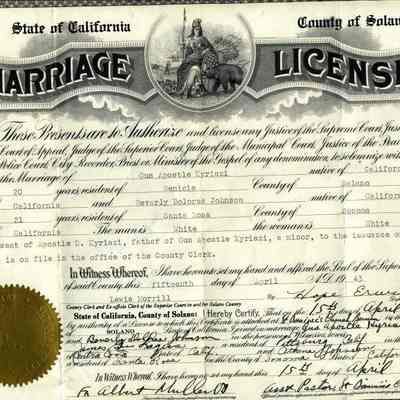 State of California County of Solano
MARRIAGE LICENSE
These Presents are to Authorize and license any Justice of the Supreme Court, Justice
Court of Appeal, Judge of the Superior Court, Judge of the Municipal Court, Justice of the Peace
Police Court, City Recorder, Priest or Minister of the Gospel of any denomination, to solemnize with
the Marriage of Gus Apostle Kyriazi native of California
20 years, resident of Benicia County of Solano
California and Beverly Dolores Johnson native of California
21 years, resident of Santa Rosa County of Sonoma
California The man is White the woman is White
sent of Apostle D. Kyriazi, father of Gus Apostle Kyriazi, a minor, to the issuance of
is on file in the office of the County Clerk.
In Witness Whereof, I have hereunto set my hand and affixed the Seal of the Superior
of said County this fifteenth day of April A.D. 19
Lewis Morrill By Hope
County Clerk and Ex-officio Clerk of the Superior Court in and for Solano County
State of California, County of Solano: I Hereby Certify, That on the 15th day of April
by authority of a License
SOLANO State of California, I joined in marriage Gus Apostle Kyriazi
and Beverly Dolores Johnson Pittsburg Calif
James Calif and
Santa Rosa County of Sonoma State of California
In Witness Whereof, I have hereunto set my hand this 15th day of April
Fr Albert Muller OP Asst Pastor, St Dominic